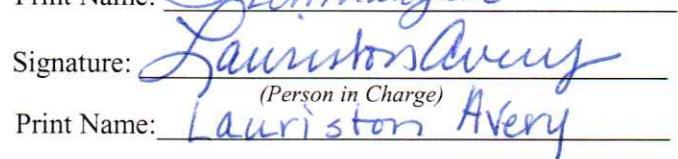 Print Name:
Signature: Lauriston Avery
(Person in Charge)
Print Name: Lauriston Avery